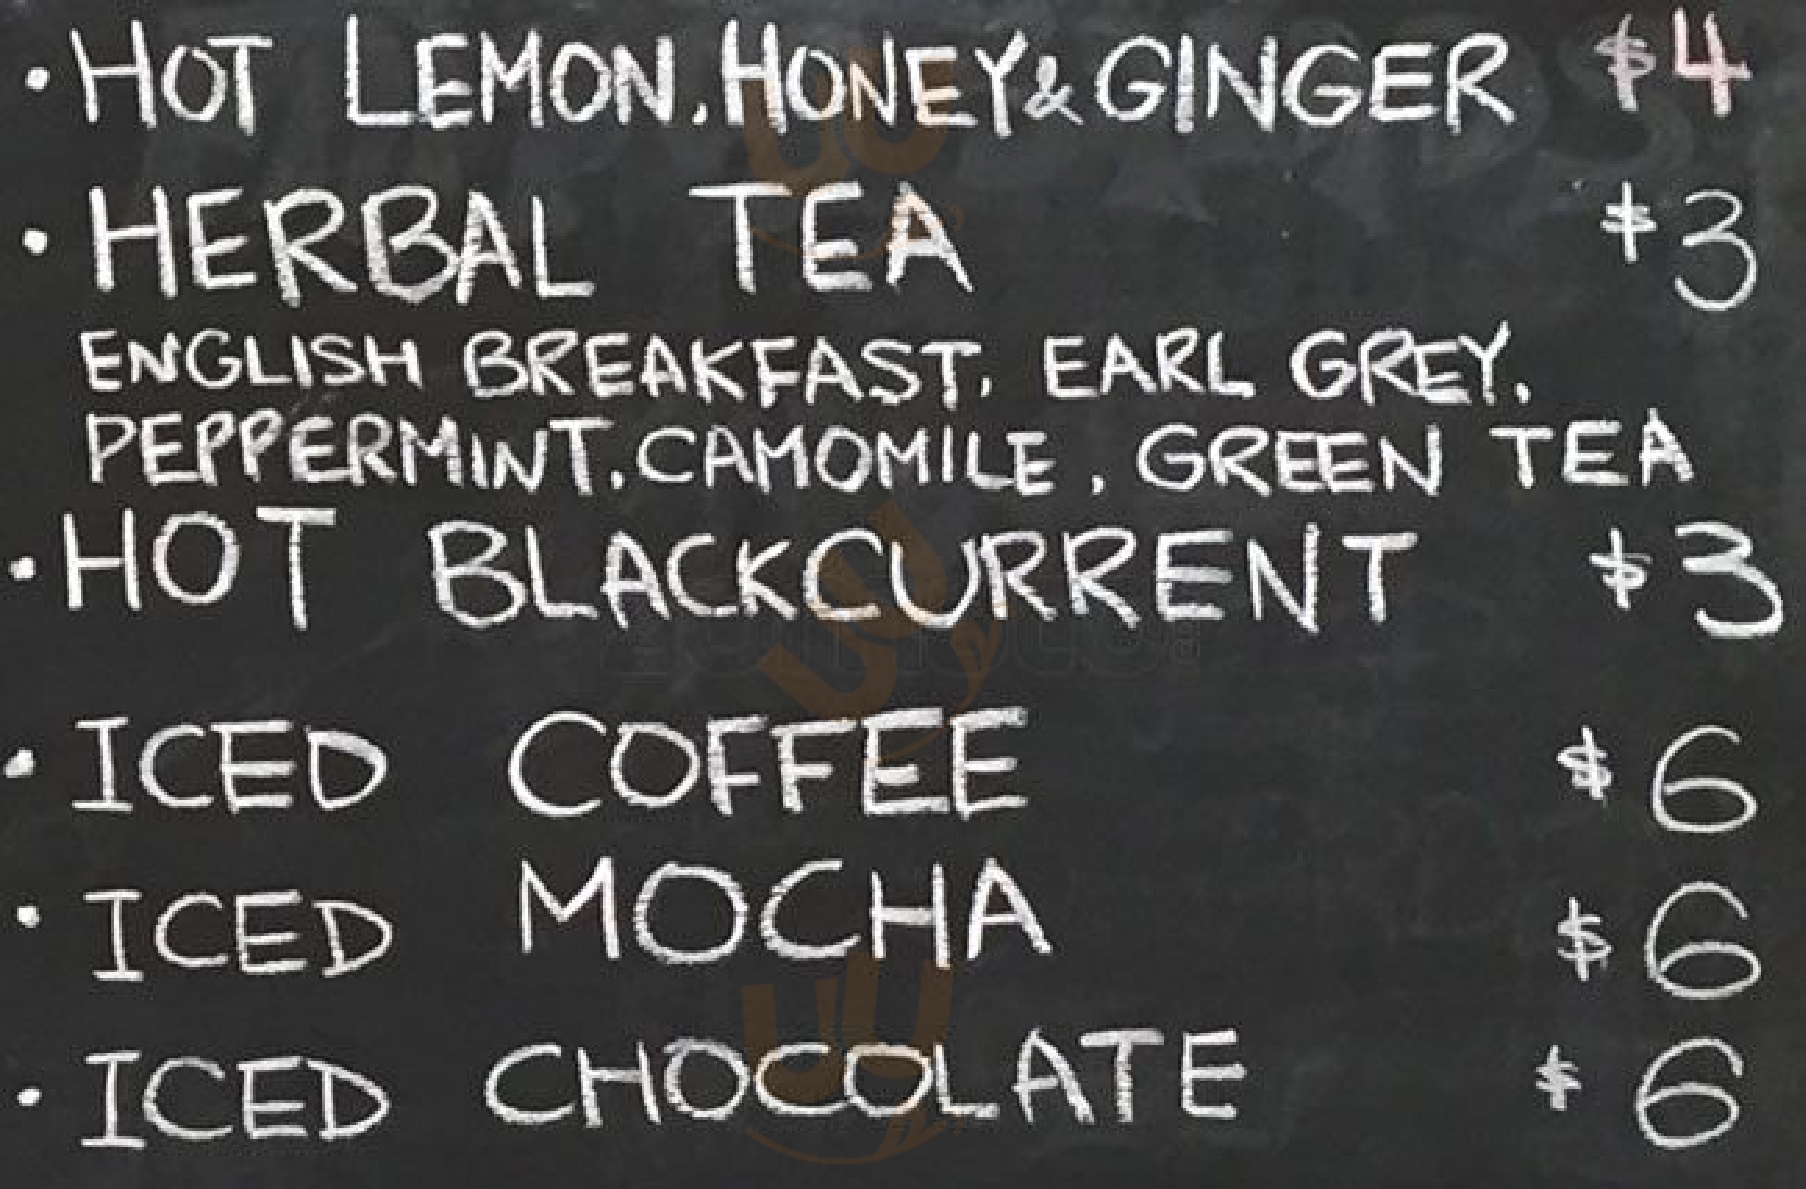 • HOT LEMON, HONEY & GINGER $4
• HERBAL TEA $3
ENGLISH BREAKFAST, EARL GREY,
PEPPERMINT, CAMOMILE, GREEN TEA
• HOT BLACKCURRENT $3
• ICED COFFEE $6
• ICED MOCHA $6
• ICED CHOCOLATE $6